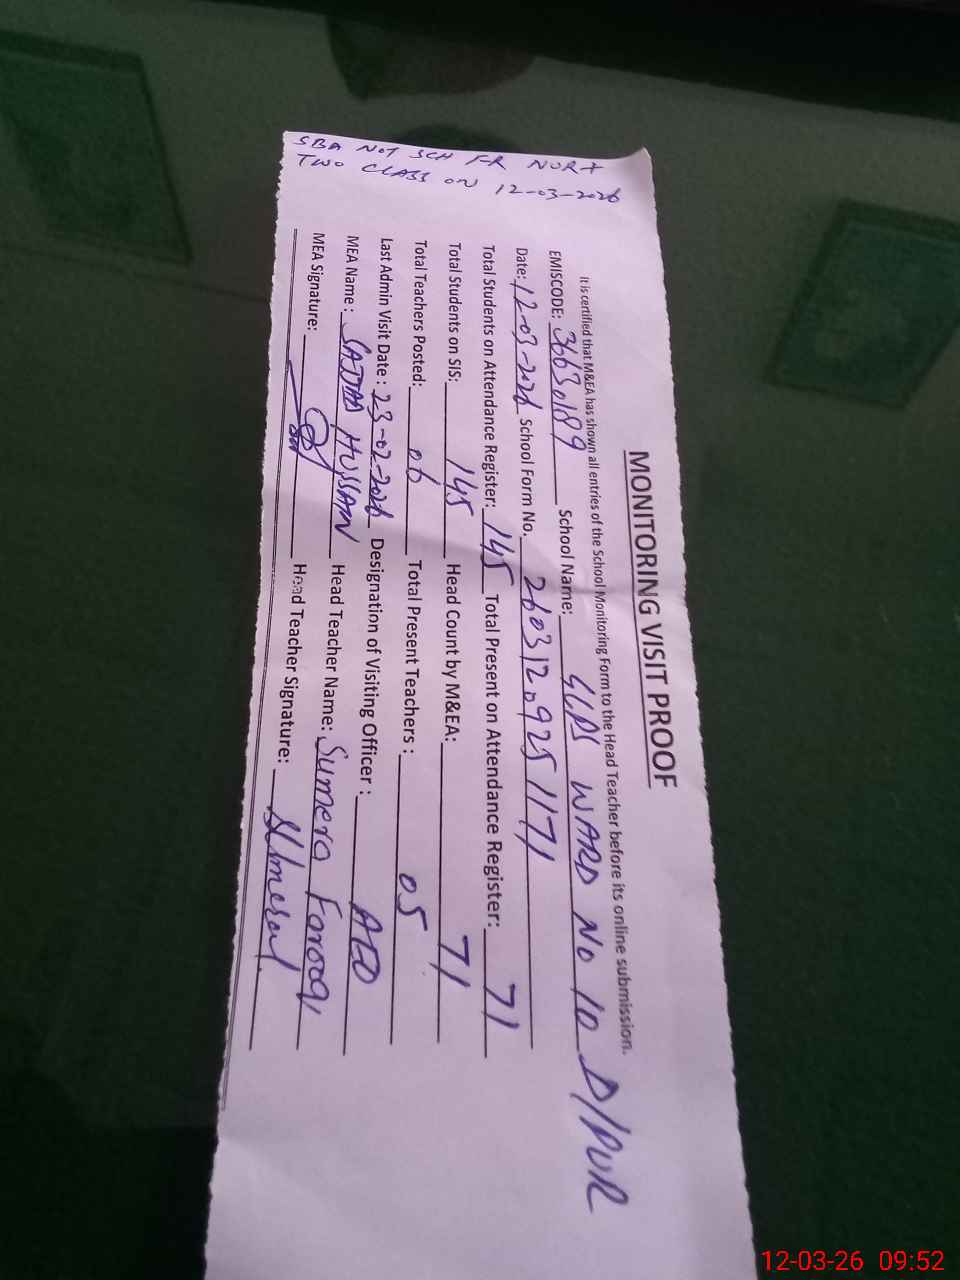 MONITORING VISIT PROOF
It is certified that M&EA has shown all entries of the School Monitoring Form to the Head Teacher before its online submission.
EMISCODE: 36630189 School Name: GGPS WARD NO 10 D/PUR
Date: 12-03-2026 School Form No. 26031209251171
Total Students on Attendance Register: 145 Total Present on Attendance Register: 71
Total Students on SIS: 145 Head Count by M&EA: 71
Total Teachers Posted: 06 Total Present Teachers : 05
Last Admin Visit Date : 23-02-2026 Designation of Visiting Officer : AEO
MEA Name : SAJJAD HUSSAIN Head Teacher Name: Sumera Farooq
MEA Signature: Head Teacher Signature:
SBA NOT SCH FR NUR +
TWO CLASS ON 12-03-2026
12-03-26 09:52